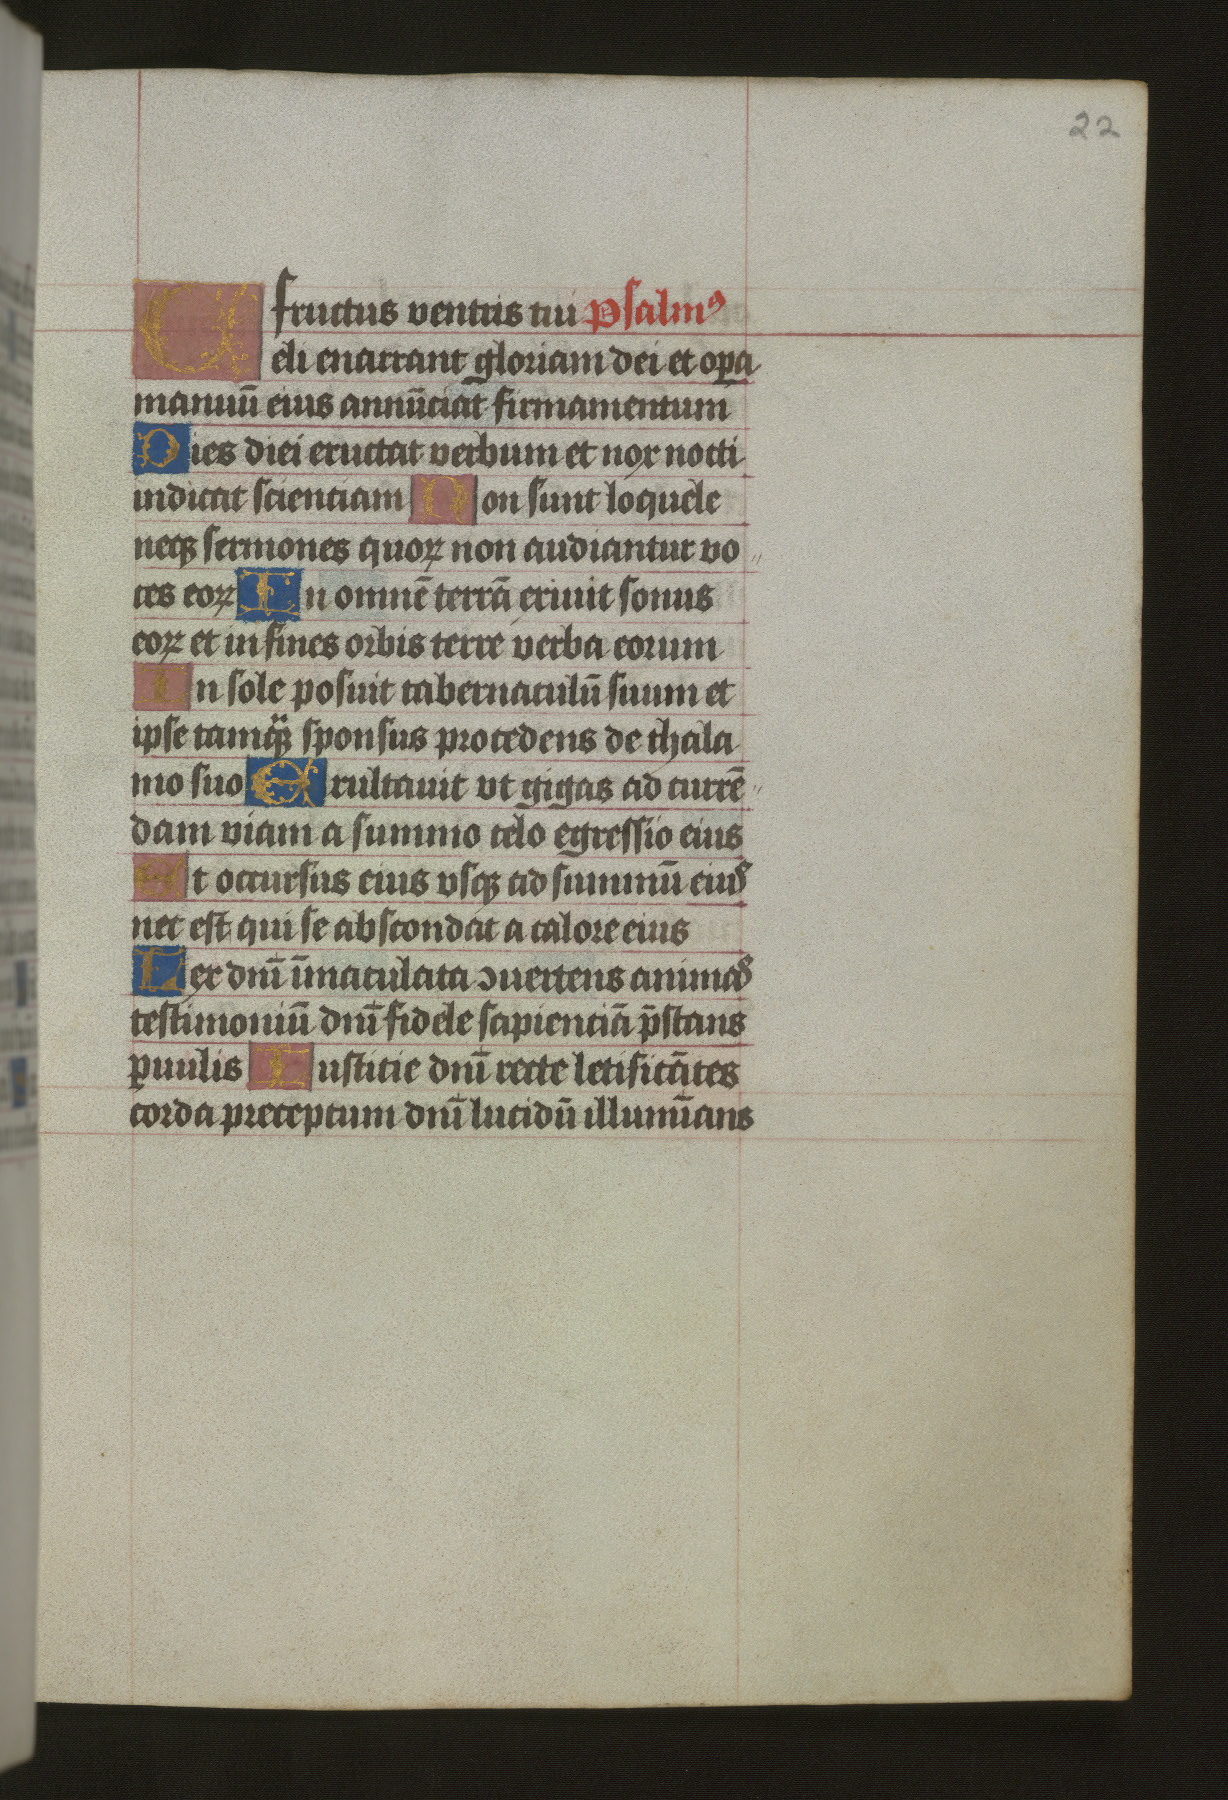 22
fructus ventris tui Psalmꝰ
Celi enarrant gloriam dei et oꝑa
manuū eius annūciat firmamentum
Dies diei eructat verbum et nox nocti
indicat scientiam Non sunt loquele
neqꝫ sermones quoꝝ non audiantur vo
ces eoꝝ In omnē terrā exiuit sonus
eoꝝ et in fines orbis terre verba eorum
In sole posuit tabernaculū suum et
ipse tamqͣꝫ sponsus procedens de thala
mo suo Exultauit vt gigas ad currē
dam viam a summo celo egressio eius
Et occursus eius vsqꝫ ad summū eius
nec est qui se abscondat a calore eius
Lex dnī īmaculata ꝯuertens animas
testimoniū dnī fidele sapienciā p̄stans
ꝑuulis Iusticie dnī recte letificātes
corda preceptum dnī lucidū illumīans